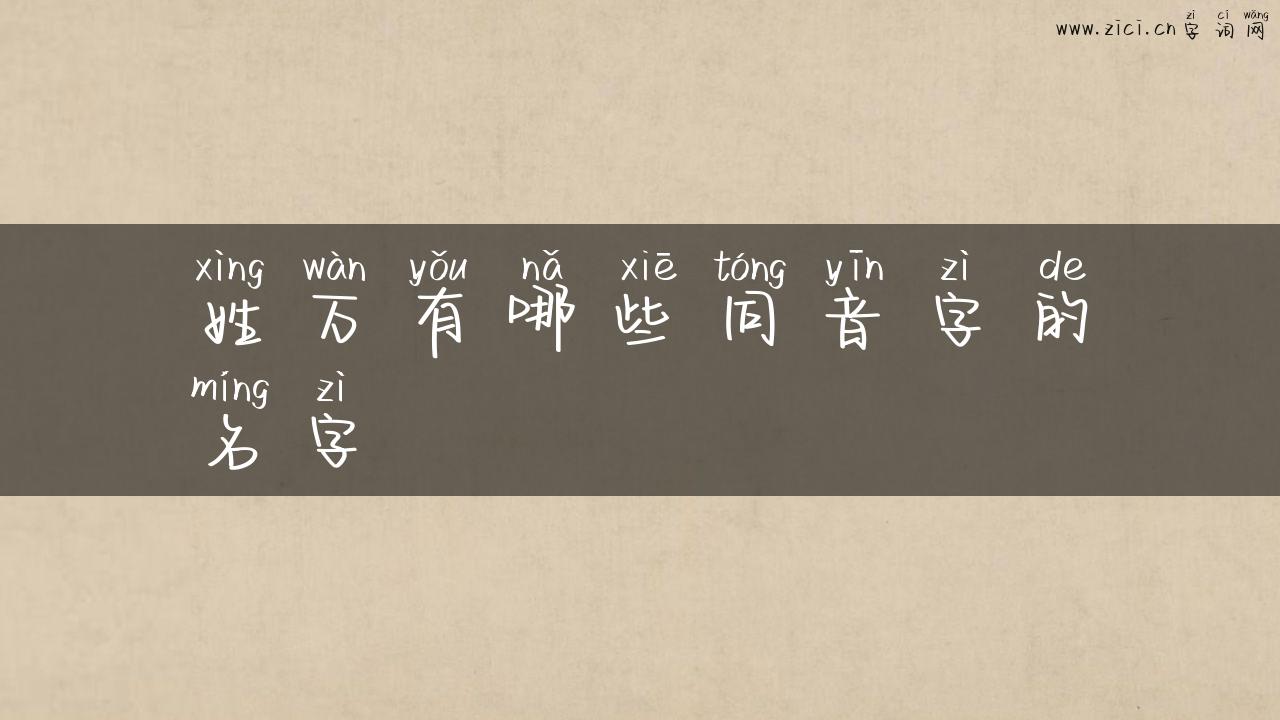 www.zici.cn字词网
zì cí wǎng
xìng wàn yǒu nǎ xiē tóng yīn zì de
姓万有哪些同音字的
míng zì
名字